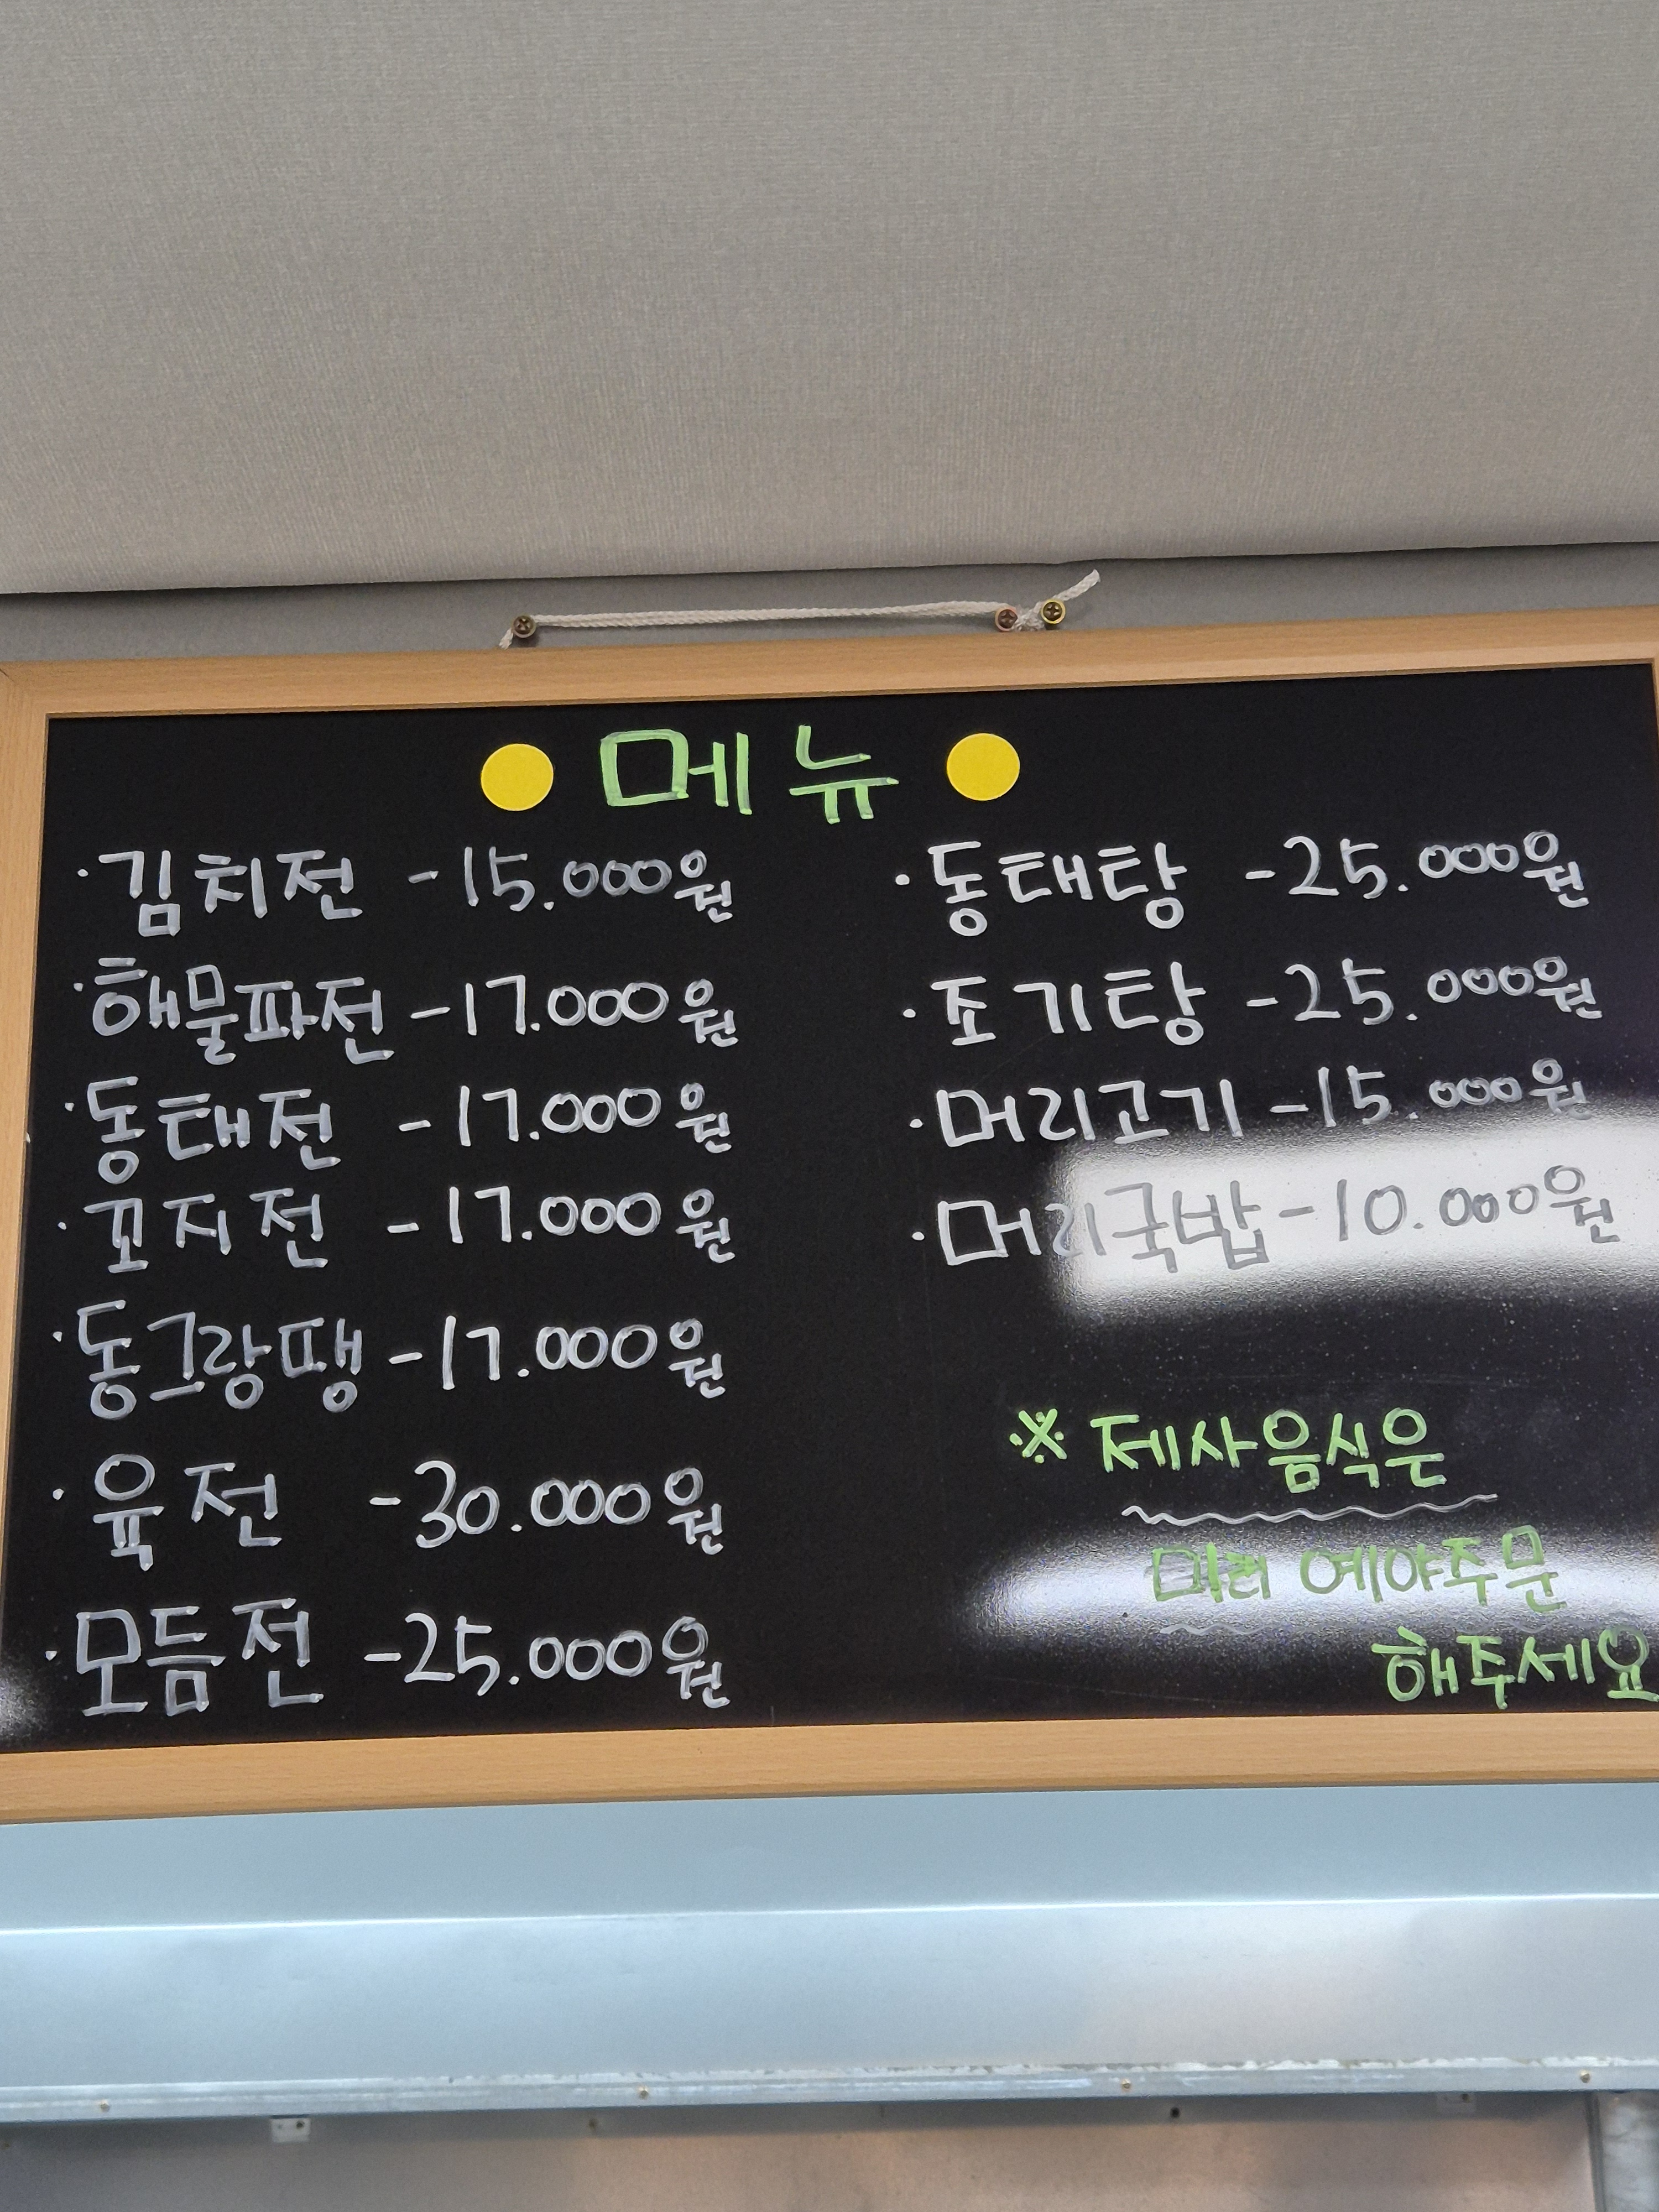 메뉴
·김치전 -15.000원
·해물파전 -17.000원
·동태전 -17.000원
·꼬지전 -17.000원
·동그랑땡 -17.000원
·육전 -30.000원
·모듬전 -25.000원
·동태탕 -25.000원
·조기탕 -25.000원
·머리고기 -15.000원
·머리국밥 -10.000원
※ 제사음식은
미리 예약주문
해주세요